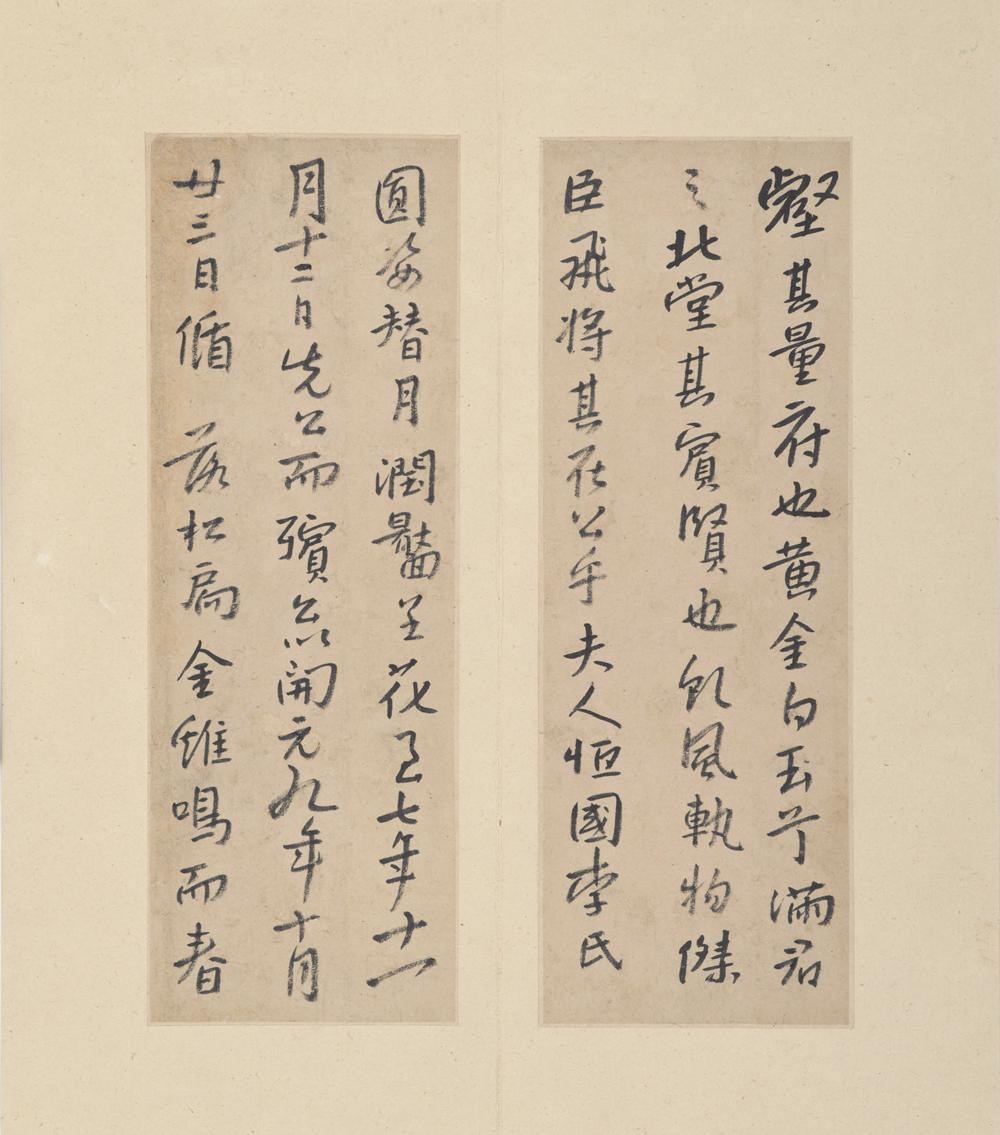 壑其量府也黄金白玉滿君
之北堂其賓賢也風執物傑
臣飛將其在公乎夫人恒國李氏
圓姿替月潤靨呈花七年十一
月十二日先公而殯開元九年十月
廿三日循落松扃金雉鳴而春